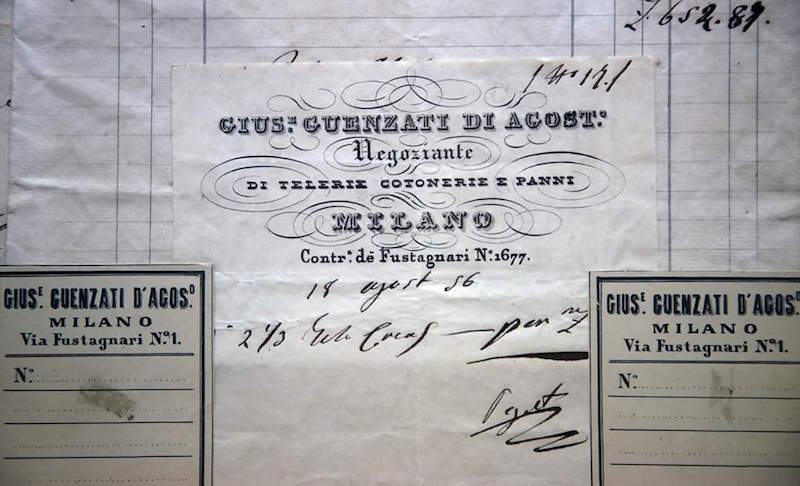 652.87.
/ No 17. /
GIUS.e GUENZATI DI AGOST.o
Negoziante
DI TELERIE COTONERIE E PANNI
MILANO
Contr.a dè Fustagnari N.o 1677.
18 agost 56
2 1/3
GIUS.E GUENZATI D'AGOS.O
MILANO
Via Fustagnari N.o 1.
N.o
GIUS.E GUENZATI D'AGOS.O
MILANO
Via Fustagnari N.o 1.
N.o